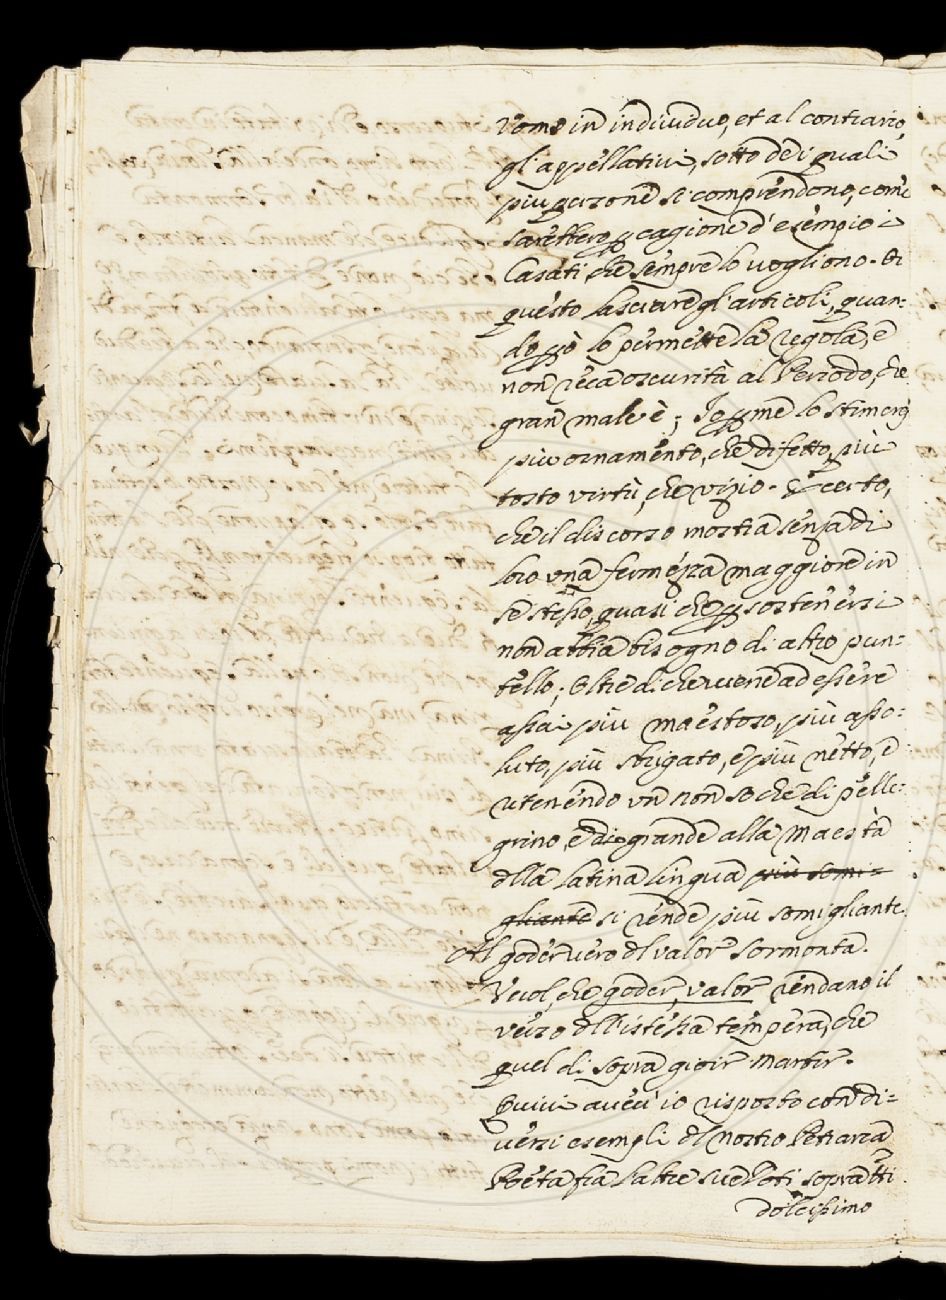 vomo in indiuiduo, et al contrario,
gl'appellatiui, sotto de i quali
piu persone si comprendono, come
sarebbero p cagione d'esempio i
Casati che sempre lo vogliono. Di
questo lasciare gl'articoli, quan=
do però lo permette la regola, e
non reca oscurità al Periodo, che
gran male è; Io p me lo stimerei
più ornamento, che difetto, più
tosto virtù, che vizio. E certo,
che il discorso mostra senza di
loro vna fermezza maggiore in
se stesso, quasi che p sostenersi
non abbia bisogno di altro pun=
tello; Oltre di che viene ad essere
assai più maestoso, più asso=
luto, più sbrigato, e più netto, e
ritenendo vn non so che di pelle=
grino, e di grande alla Maestà
dlla latina lingua più somi=
gliante si rende più somigliante.
Al goder vero dl valor sormonta.
Vuol, che goder, valor rendano il
verso dll'istessa tempera, che
quel di sopra gioir Martir.
Quiui aueu' io risposto con di=
uersi esempli dl nostro Petrarca
Poeta fra l'altre sue doti sopra tti
dolcissimo